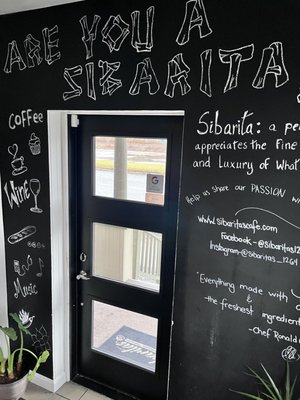 ARE YOU A
SIBARITA
Coffee
Wine
Music
Sibarita: a pe
appreciates the Fine
and Luxury of What
Help us share our PASSION wi
www.Sibaritascafe.com
Facebook-@Sibaritas12
Instagram-@Sibaritas_1264
"Everything made w
& the freshest ingredient
-Chef Ronald